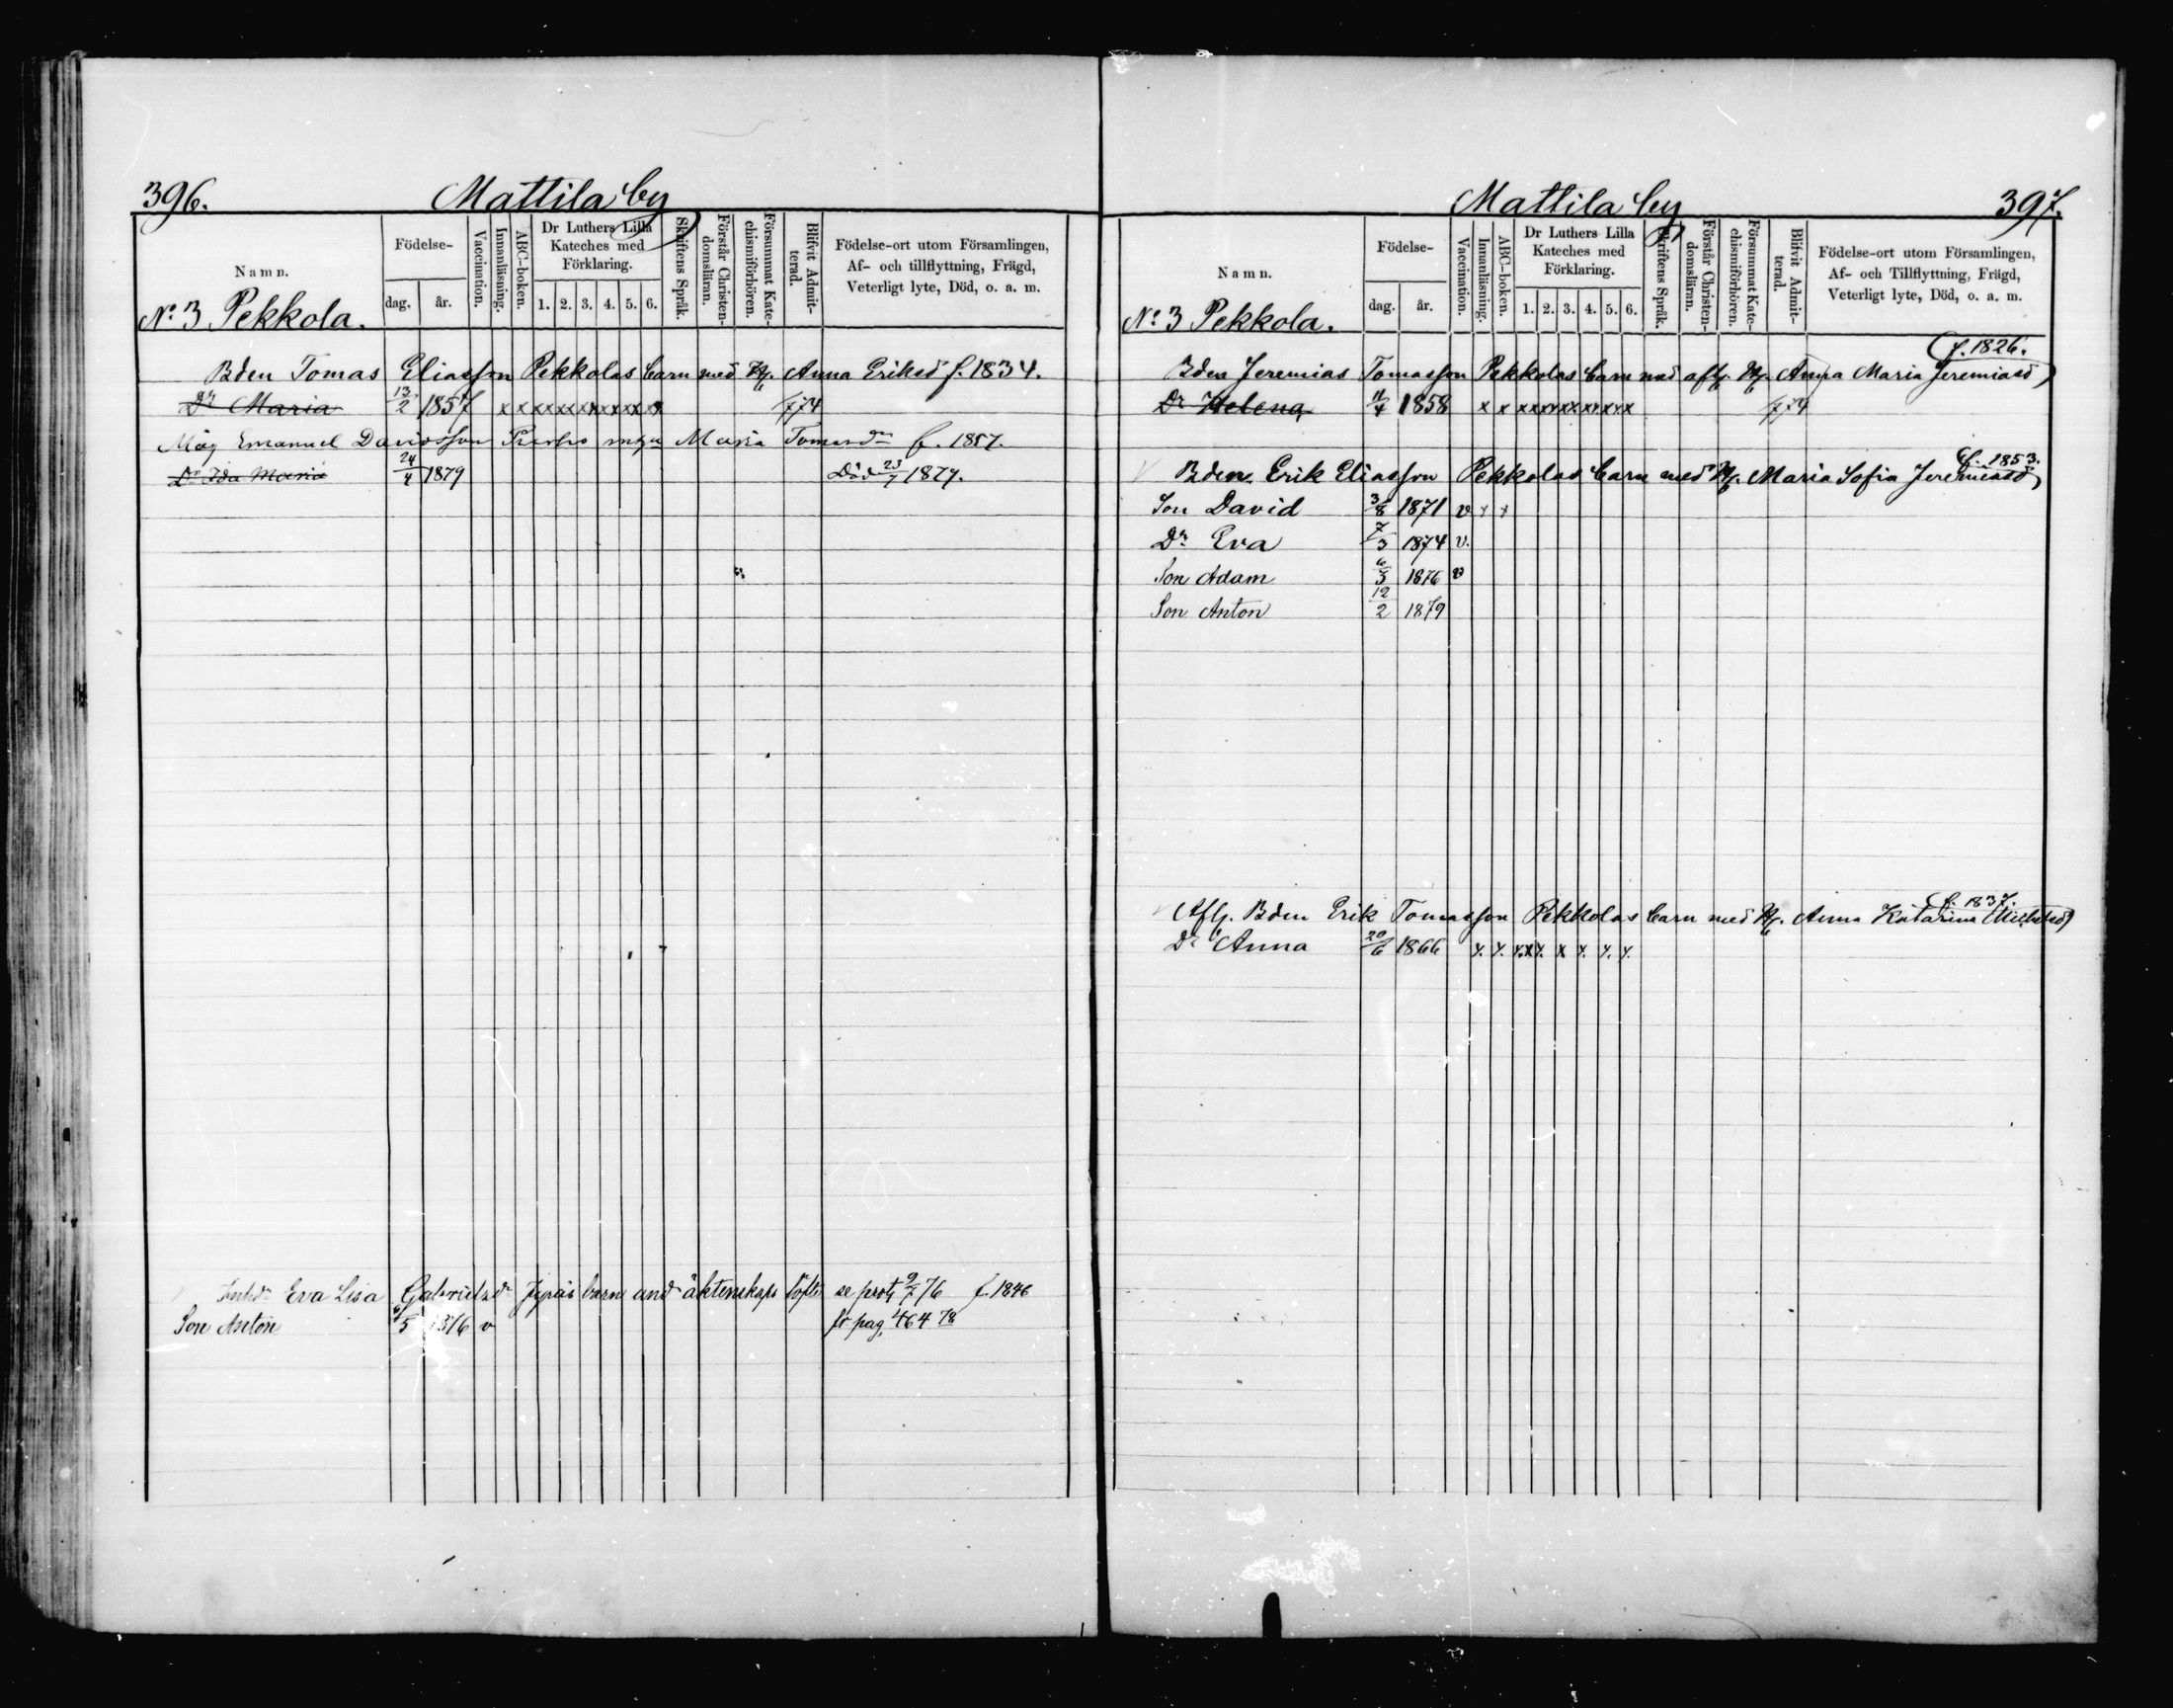 396.
Mattila by
Namn.
Födelse-
dag. år.
Vaccination.
Innanläsning.
ABC-boken.
Dr Luthers Lilla
Kateches med
Förklaring.
1. 2. 3. 4. 5. 6.
Skriftens Språk.
Förstår Christen-
domsläran.
Försummat Kate-
chismiförhören.
Blifvit Admit-
terad.
Födelse-ort utom Församlingen,
Af- och tillflyttning, Frägd,
Veterligt lyte, Död, o. a. m.
No 3 Pekkola.
Bden Tomas Eliasson Pekkolas barn med H. Anna Eriksd f. 1834.
Dr Maria 13/2 1857 x x x x x x x x x x x 774
Måg Emanuel Davidsson Maria Tomasdr f. 1857.
Dr Ida Maria 24/4 1879 Död 23/7 1879.
Eva Lisa Gabrielsdr barn und äktenskaps löfte se prot 9/7 76 f. 1846
Son Anton 6/5 1876 v fr pag. 464 78
Mattila by
397.
Namn.
Födelse-
dag. år.
Vaccination.
Innanläsning.
ABC-boken.
Dr Luthers Lilla
Kateches med
Förklaring.
1. 2. 3. 4. 5. 6.
Skriftens Språk.
Förstår Christen-
domsläran.
Försummat Kate-
chismiförhören.
Blifvit Admit-
terad.
Födelse-ort utom Församlingen,
Af- och Tillflyttning, Frägd,
Veterligt lyte, Död, o. a. m.
No 3 Pekkola.
f. 1826.
Bden Jeremias Tomasson Pekkolas barn med afl. H. Anna Maria Jeremiasd
Dr Helena 11/4 1858 x x x x x x x x x x 774
f. 1853.
Bden Erik Eliasson Pekkolas barn med H. Maria Sofia Jeremiasd
Son David 3/8 1871 v x x
Dr Eva 7/5 1874 v.
Son Adam 6/3 1876 v
Son Anton 12/2 1879
f. 1837.
Afl. Bden Erik Tomasson Pekkolas barn med H. Anna Katarina Michelsd
Dr Anna 20/6 1866 x. x. x. x x. x x. x. x.